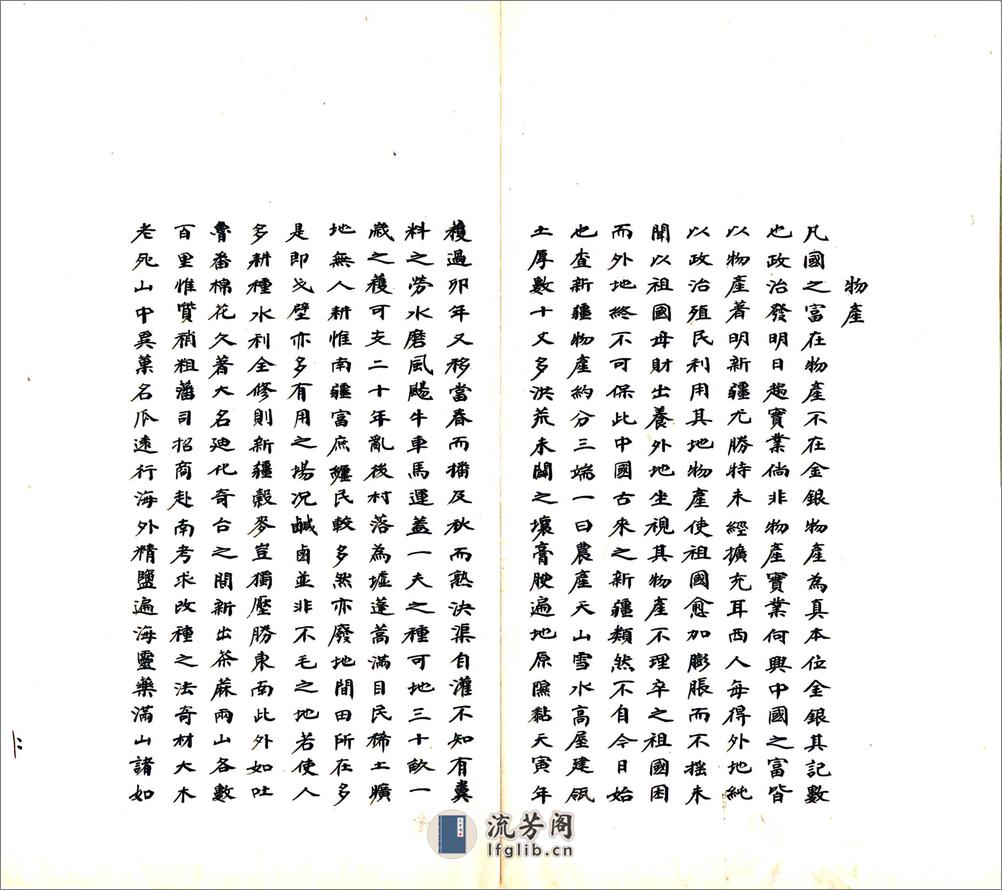 物產
凡國之富在物產不在金銀物產為真本位金銀其記數
也政治發明日趨實業倘非物產實業何興中國之富皆
以物產著明新疆尤勝特未經擴充耳西人每得外地純
以政治殖民利用其地物產使祖國愈加膨脹而不搖未
聞以祖國母財出養外地坐視其物產不理卒之祖國困
而外地終不可保此中國古來之新疆類然不自今日始
也查新疆物產約分三端一曰農產天山雪水高屋建瓴
土厚數十丈多洪荒未闢之壤膏腴遍地原隰黏天寅年
穫過卯年又移當春而播及秋而熟決渠自灌不知有糞
料之勞水磨風颺牛車馬運蓋一夫之種可地三十畝一
歲之穫可支二十年亂後村落為墟蓬蒿滿目民稀土曠
地無人耕惟南疆富庶纏民較多然亦廢地閒田所在多
是即戈壁亦多有用之場況鹹鹵並非不毛之地若使人
多耕種水利全修則新疆穀麥豈獨壓勝東南此外如吐
魯番棉花久著大名廸化奇台之間新出茶蔴兩山各數
百里惟質稍粗藩司招商赴南考求改種之法奇材大木
老死山中異菓名瓜遠行海外精鹽遍海靈藥滿山諸如
流芳阁
lfglib.cn